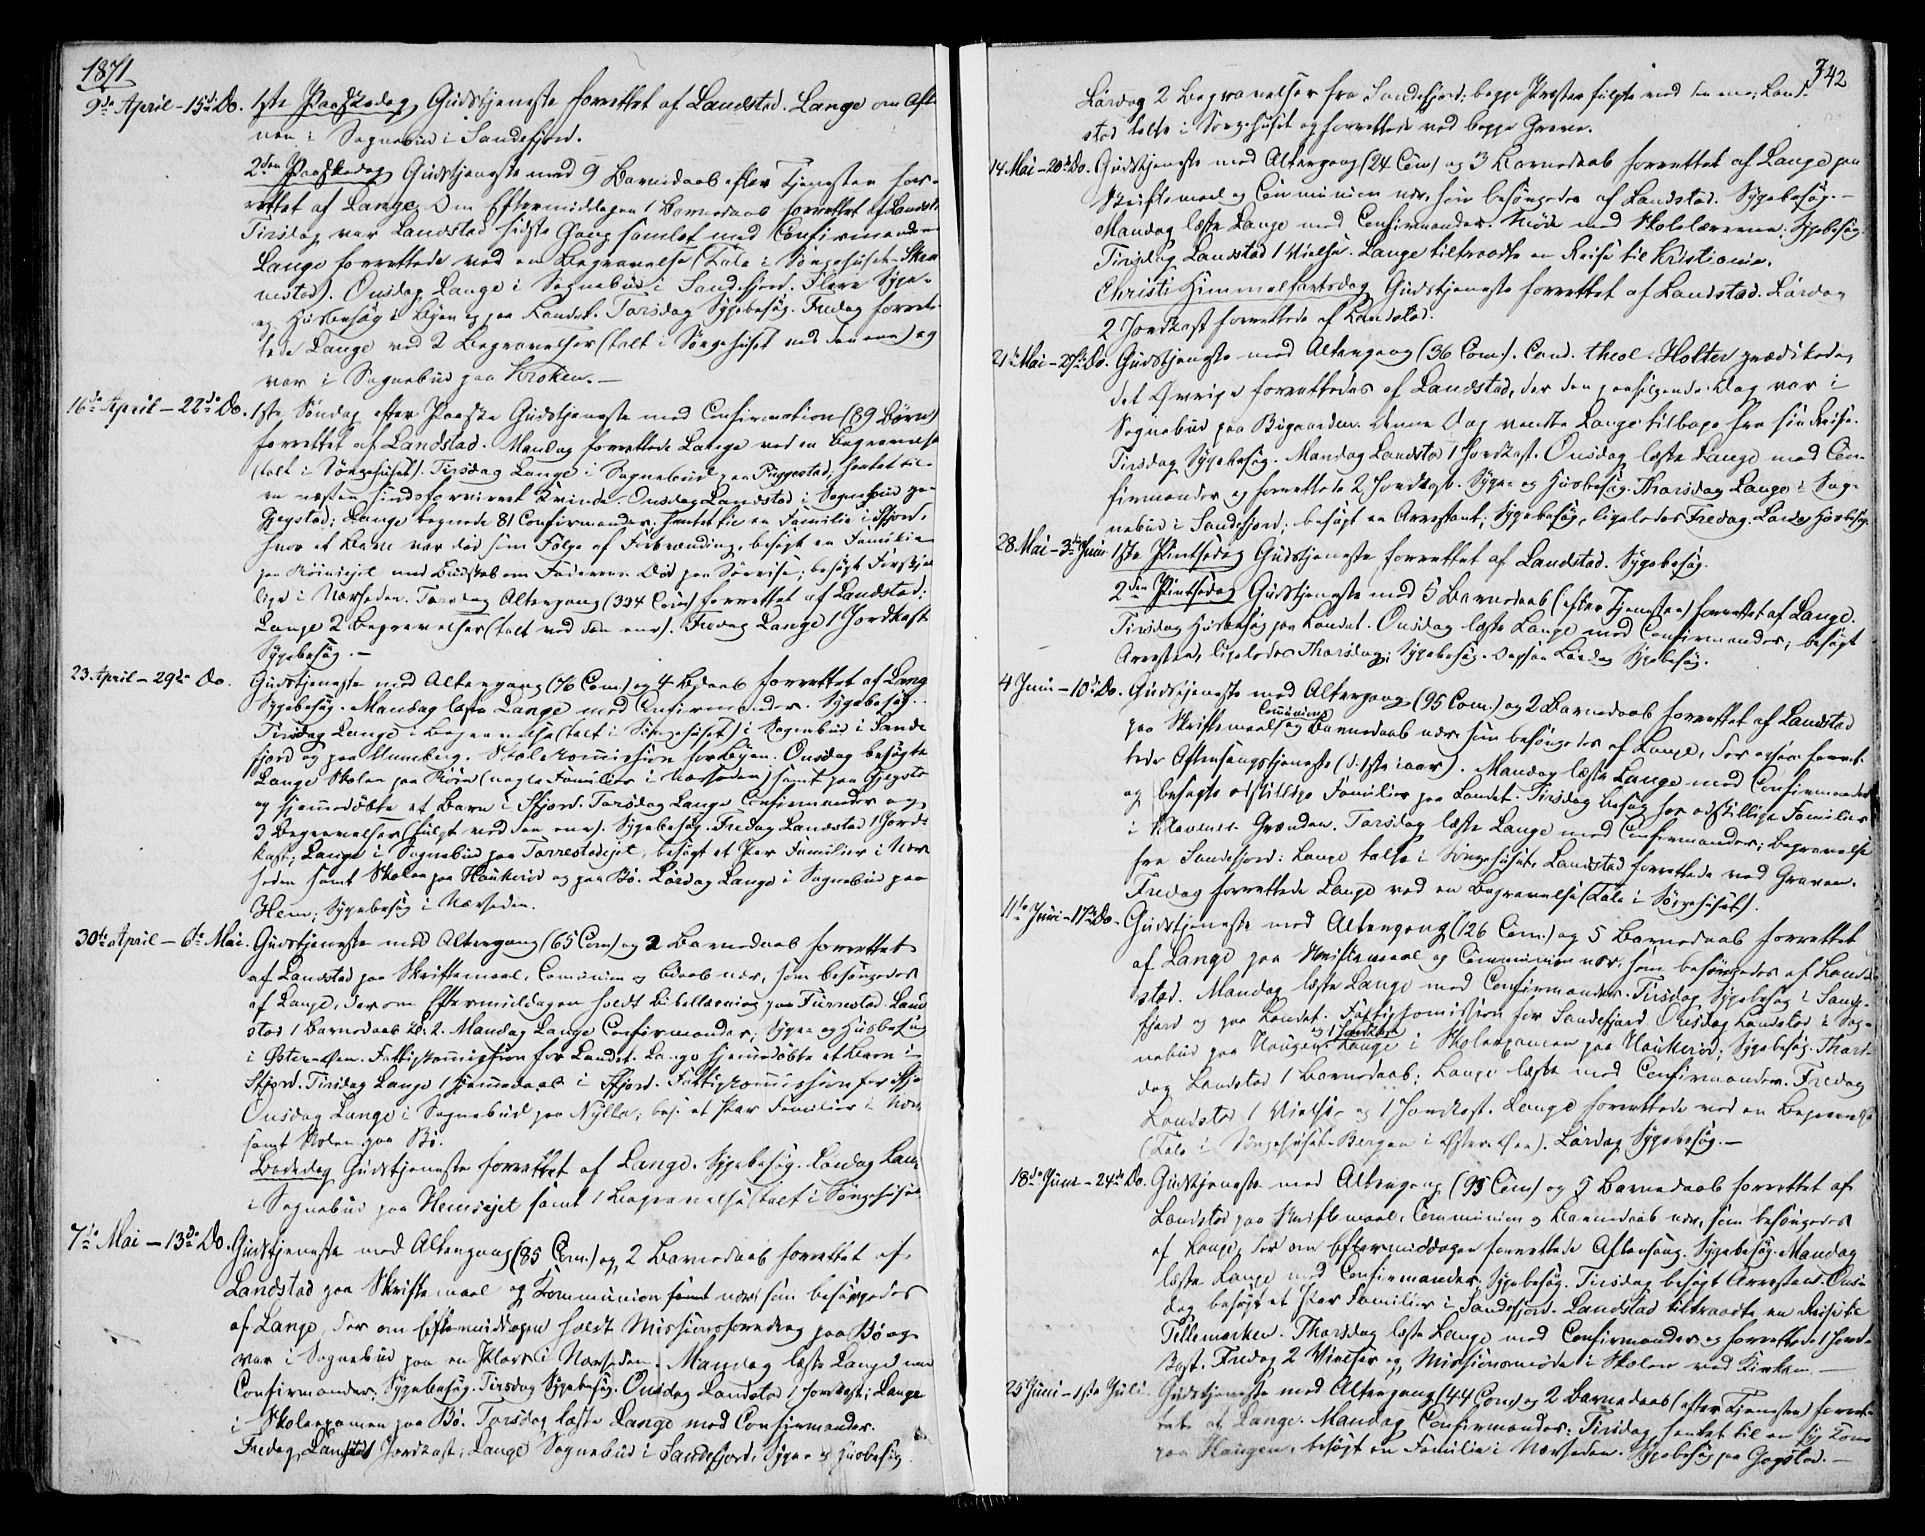 1871
9de April – 15de Do. 1ste Paaskedag Gudstjeneste forrettet af Landstad. Lange om Aft-
nen i Sognebud i Sandefjord.
2den Paaskedag Gudstjeneste med 9 Barnedaab efter Tjenesten for-
rettet af Lange. Om Eftermiddagen 1 Barnedaab forrettet af Landst.
Tirsdag var Landstad sidste Gang samlet med Confirmanderne
Lange forrettede ved en Begravelse (Tale i Sørgehuset – 
nestad). Onsdag Lange i Sognebud i Sandefjord. Flere Syge-
og Husbesøg i Byen og paa Landet. Torsdag Sygebesøg. Fredag forret-
tede Lange ved 2 Begravelser (talt i Sørgehuset ved den ene) og
var i Sognebud paa Kroken. –
16de April – 22de Do. 1ste Søndag efter Paaske Gudstjeneste med Confirmation (89 Børn)
forrettet af Landstad. Mandag forrettede Lange ved en Begravelse
(talt i Sørgehuset). Tirsdag Lange i Sognebud paa Puggestad, hentet til
en næsten sindsforvirret Kvinde. Onsdag Landstad i Sognebud paa
Gjegstad; Lange begyndte 81 Confirmander; hentet til en Familie i Sfjord,
hvor et Barn var død som Følge af Forbrænding, besøgt en Familie
paa med Budskab om Faderens Død paa Søreise; besøgt forskjel-
lige i Nærheden. Torsdag Altergang (334 Com) forrettet af Landstad;
Lange 2 Begravelser (talt ved den ene). Fredag Lange 1 Jordkast
Sygebesøg. –
23. April – 29de Do. Gudstjeneste med Altergang (76 Com) og 4 Bdaab forrettet af Lang
Sygebesøg. Mandag læste Lange med Confirmander. Sygebesøg.
Tirsdag Lange i Begravelse (talt i Sørgehuset) i Sognebud i Sande
fjord og paa . Skolecommission for Byen. Onsdag besøgte
Lange Skolen paa (nogle Familier i Nærheden) samt paa Gjegsta
og hjemmedøbte et Barn i Sfjord. Torsdag Lange Confirmander og
3 Begravelser (fulgt ved den ene). Sygebesøg. Fredag Landstad 1 Jord-
kast; Lange i Sognebud paa Torrestadejet, besøgt et Par Familier i Nær
heden samt Skolen paa Haukerød og paa Bø. Lørdag Lange i Sognebud paa
Hem; Sygebesøg i Nærheden.
30te April – 6te Mai. Gudstjeneste med Altergang (65 Com) og 2 Barnedaab forrettet
af Landstad paa Skriftemaal, Communion og Bdaab nær, som besørgedes
af Lange, der om Eftermiddagen holdt Bibellæsning paa Furustad. Land
stad 1 Barnedaab Kl. 2. Mandag Lange Confirmander; Syge- og Husbesøg
i Øster-Øen. Fattigcommission for Landet. Lange hjemmedøbte et Barn i
Sfjord. Tirsdag Lange 1 Hjemmedaab i Sfjord. Fattigcommission for Sfjo
Onsdag Lange i Sognebud paa Nylla; bes. et Par Familier i Nær,
samt Skolen paa Bø.
Bededag Gudstjeneste forrettet af Lange. Sygebesøg. Lørdag Lan
i Sognebud paa Hemsejet samt 1 Begravelse (talt i Sørgehuset
7de Mai – 13de Do. Gudstjeneste med Altergang (85 Com.) og 2 Barnedaab forrettet af
Landstad paa Skriftemaal og Kommunion samt nær som besørgedes
af Lange, der om Eftermiddagen holdt Missionsforedrag paa Bø og
var i Sognebud paa en Plads i Nærheden. Mandag læste Lange med
Confirmander, Sygebesøg. Tirsdag Sygebesøg. Onsdag Landstad 1 Jordkast; Lange
i Skoleexamen paa Bø. Torsdag læste Lange med Confirmander.
Fredag Landstad Jordkast; Lange Sognebud i Sandefjord, Syge- og Husbesøg.
342
Lørdag 2 Begravelser fra Sandefjord; begge Præster fulgte med den ene; Land-
stad talte i Sørgehuset og forrettede ved begge Grave.
14 Mai – 20de Do. Gudstjeneste med Altergang (24 Com) og 3 Barnedaab forrettet af Lange paa
Skriftemaal og Communion nær, som besørgedes af Landstad. Sygebesøg. –
Mandag læste Lange med Confirmander. Møde med Skolelærerne. Sygebesøg.
Tirsdag Landstad 1 Vielse. Lange tiltraadte en Reise til Kristiania.
Christi Himmelfartsdag Gudstjeneste forrettet af Landstad. Lørdag
2 Jordkast forrettede af Landstad.
21de Mai – 27de Do. Gudstjeneste med Altergang (36 Com.). Cand. theol. Holter prædikede,
det Øvrige forrettedes af Landstad, der den paafølgende Dag var i
Sognebud paa Bugaarden. Denne Dag vendte Lange tilbage fra sin Reise.
Tirsdag Sygebesøg. Mandag Landstad 1 Jordkast. Onsdag læste Lange med Con-
firmander og forrettede 2 Jordkast. Syge- og Husbesøg. Thorsdag Lange i Sog-
nebud i Sandefjord; besøgt en Arrestant; Sygebesøg, ligeledes Fredag. Lørdag Husbesøg.
28 Mai – 3de Juni 1ste Pintsedag Gudstjeneste forrettet af Landstad. Sygebesøg.
2den Pintsedag Gudstjeneste med 5 Barnedaab (efter Tjenesten) forrettet af Lange.
Tirsdag Husbesøg paa Landet. Onsdag læste Lange med Confirmander; besøgt
Arresten, ligeledes Thorsdag; Sygebesøg. Lørdag Sygebesøg.
4 Juni – 10de Do. Gudstjeneste med Altergang (95 Com.) og 2 Barnedaab forrettet af Landstad
paa Skriftemaal, Communion og Barnedaab nær, som besørgedes af Lange, der ogsaa forret-
tede Aftensangstjeneste (d. 1ste i aar). Mandag læste Lange med Confirmander
og besøgte adskillige Familier paa Landet. Tirsdag besøg hos adskillige Familier
i Klavenes-Grænden. Torsdag læste Lange med Confirmander; Begravelse
fra Sandefjord: Lange talte i Sørgehuset, Landstad forrettede ved Graven.
Fredag forrettede Lange ved en Begravelse (Tale i Sørgehuset).
11te Juni – 17de Do. Gudstjeneste med Altergang (126 Com.) og 5 Barnedaab forrettet
af Lange paa Skriftemaal og Communion nær, som besørgedes af Land-
stad. Mandag læste Lange med Confirmander. Tirsdag Sygebesøg i Sande-
fjord og paa Landet. Fattigcommission for Sandefjord. Onsdag Landstad i Sog-
nebud paa Haugen og 1 Jordkast. Lange i Skoleexamen paa Haukerød; Sygebesøg. Thors-
dag Landstad 1 Barnedaab; Lange læste med Confirmander. Fredag
Landstad 1 Vielse og 1 Jordkast. Lange forrettede ved en Begravelse
(Tale i Sørgehuset – Bergan i Øster-Øen). Lørdag Sygebesøg. –
18de Juni – 24de Do. Gudstjeneste med Altergang (95 Com) og 5 Barnedaab forrettet af
Landstad paa Skriftemaal, Communion og Barnedaab nær, som besørgedes
af Lange, der om Eftermiddagen forrettede Aftensang. Sygebesøg. Mandag
læste Lange med Confirmander. Sygebesøg. Tirsdag besøgt Arresten. Ons-
dag besøgt et Par Familier i Sandefjord. Landstad tiltraadte en Reise til
Tellemarken. Thorsdag læste Lange med Confirmander og forrettede 1 Jord-
kast. Fredag 2 Vielser og Missionsmøde i Skolen ved Kirken. –
25 Juni – 1ste Juli. Gudstjeneste med Altergang (44 Com) og 2 Barnedaab (efter Tjenesten) forret-
tet af Lange. Mandag Confirmander; Tirsdag hentet til en syg Kone
paa Haugen, besøgt en Familie i Nærheden. Sygebesøg paa Gogstad. –